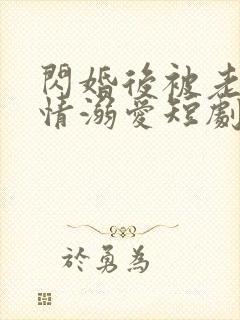 閃婚後被老
情溺愛短劇
於勇為